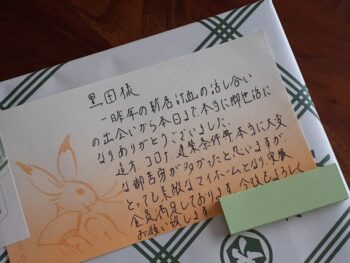 黒田様
一昨年の新居計画の話し合い
の出会いから本日まで本当に御世話に
なりありがとうございました。
追才 コロナ、建築条件等本当に大変
な御苦労が多かったと思いますが
とっても素敵なマイホームとなり家族
全員満足しております。今後もよろしく
お願い致します。